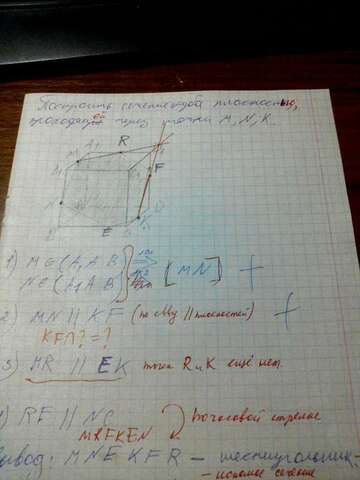 Построить сечение куба плоскостью,
проходящей через точки M, N, K.
M A₁ R
A₁ F
N
E K
1) M ∈ (A₁ A B)
N ∈ (A₁ A B) ⇒ [MN] +
2) MN || KF (по св-ву || плоскостей) +
KF ∩ ? = ?
3) MR || EK точек R и K ещё нет.
4) RF || NE по часовой стрелке
MRFKEN
Вывод: MNEKFR – шестиугольник –
– искомое сечение